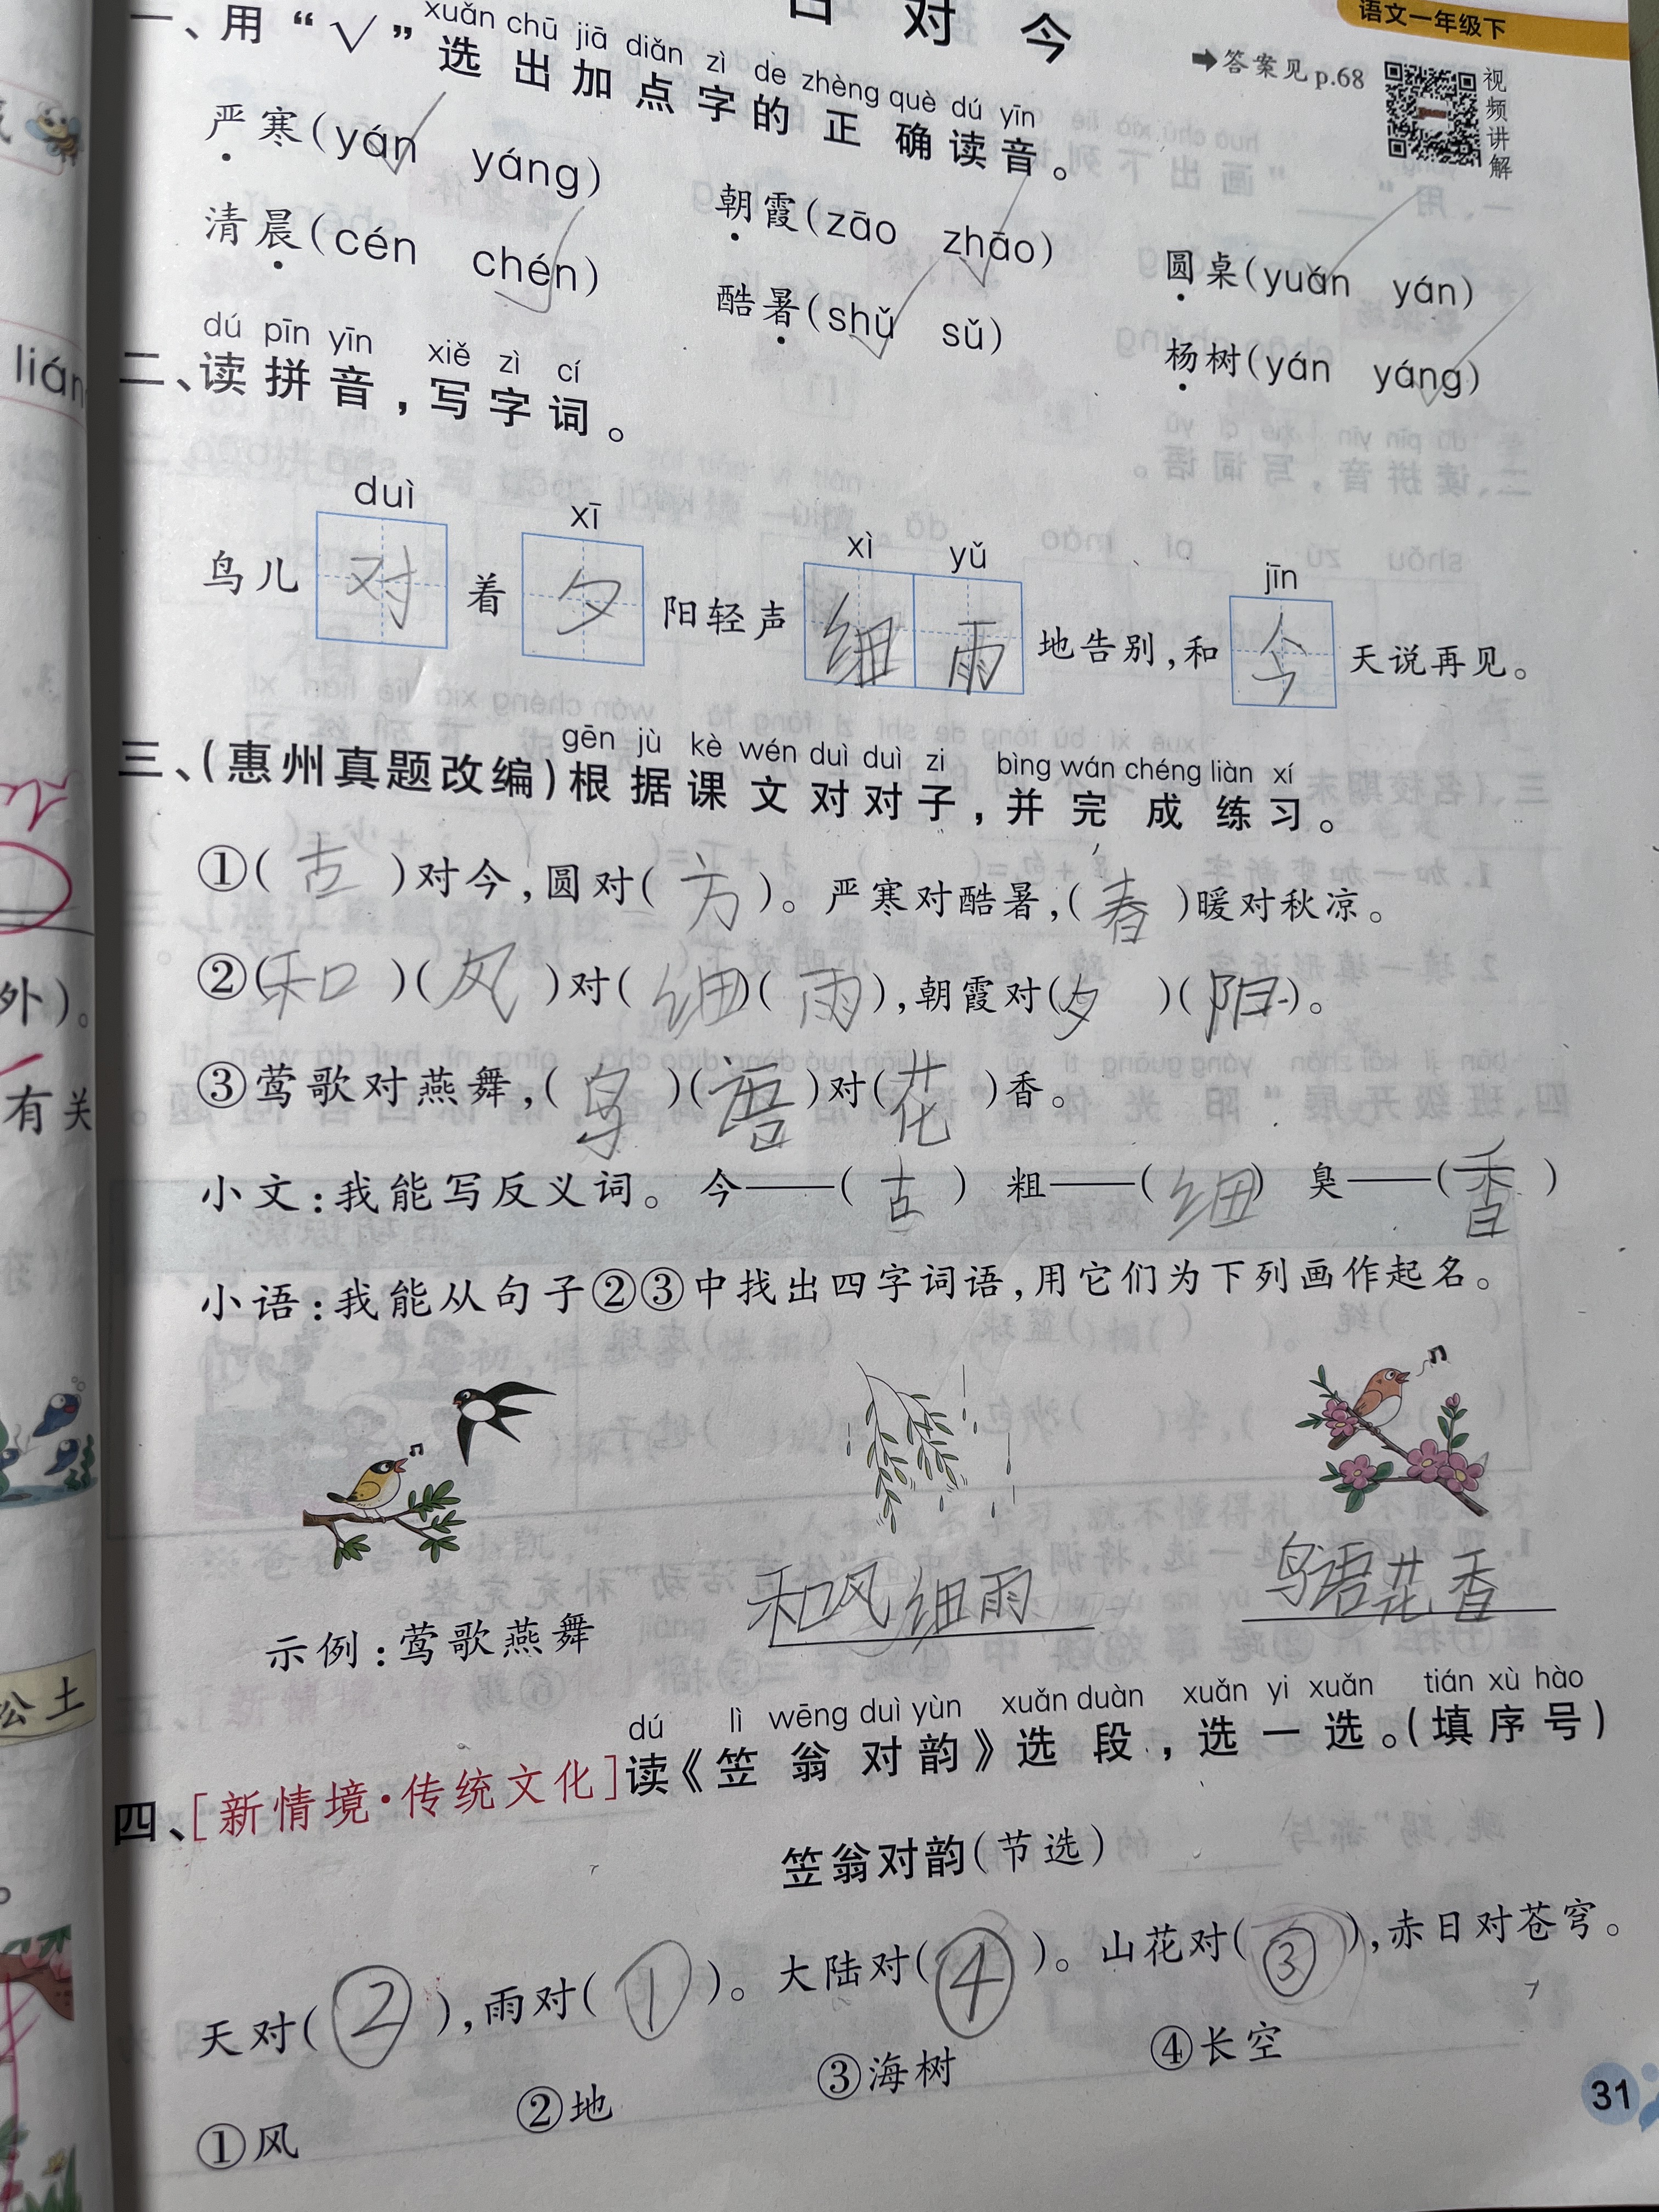 语文一年级下
对 今
➡答案见p.68
视频讲解
xuǎn chū jiā diǎn zì de zhèng què dú yīn
一、用“√”选出加点字的正确读音。
严寒(yán yáng) 朝霞(zāo zhāo) 圆桌(yuán yán)
清晨(cén chén) 酷暑(shǔ sǔ) 杨树(yán yáng)
dú pīn yīn xiě zì cí
二、读拼音,写字词。
duì xī xì yǔ jīn
鸟儿对着夕阳轻声细雨地告别,和今天说再见。
gēn jù kè wén duì duì zi bìng wán chéng liàn xí
三、(惠州真题改编)根据课文对对子,并完成练习。
①(古)对今,圆对(方)。严寒对酷暑,(春)暖对秋凉。
②(和)(风)对(细)(雨),朝霞对(夕)(阳)。
③莺歌对燕舞,(鸟)(语)对(花)香。
小文:我能写反义词。 今——(古) 粗——(细) 臭——(香)
小语:我能从句子②③中找出四字词语,用它们为下列画作起名。
示例:莺歌燕舞 和风细雨 鸟语花香
dú lì wēng duì yùn xuǎn duàn xuǎn yi xuǎn tián xù hào
四、[新情境·传统文化]读《笠翁对韵》选段,选一选。(填序号)
笠翁对韵(节选)
天对(②),雨对(①)。大陆对(④)。山花对(③),赤日对苍穹。
①风 ②地 ③海树 ④长空
31
lián
外)。
有关
公土